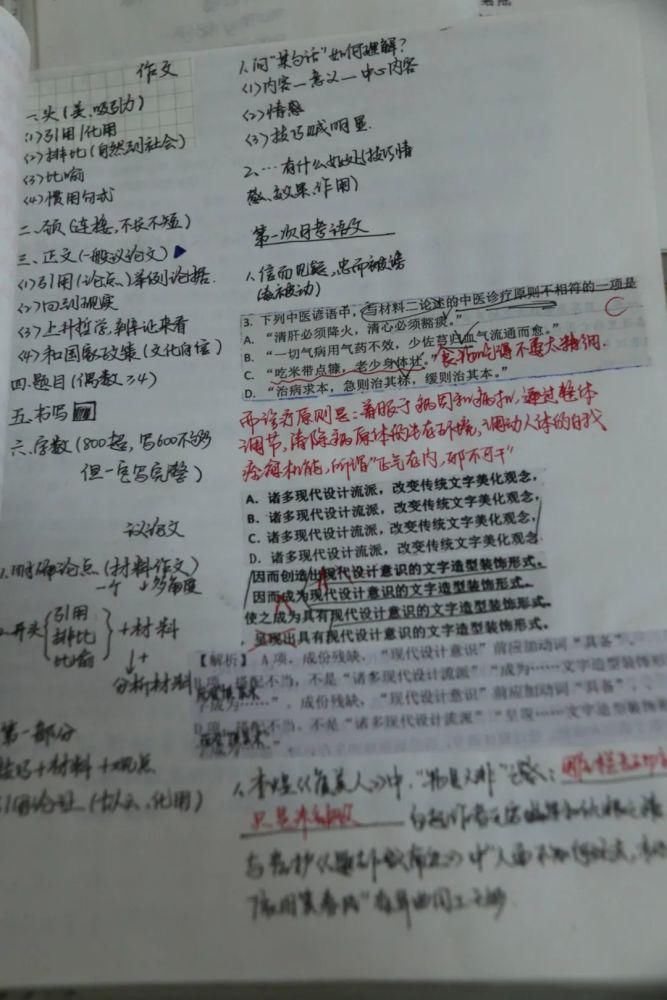 作文
一、头(美、吸引力)
(1)引用/化用
(2)排比(自然到社会)
(3)比喻
(4)惯用句式
二、颈(连接,不长不短)
三、正文(一般议论文)
(1)引用(论点、)举例论据.
(2)回到现实
(3)上升哲学,辩证来看
(4)和国家政策(文化自信)
四.题目(偶数≥4)
五.书写
六.字数(800超,写600不够
但一定写完整)
议论文
1.明确论点(材料作文)
一个 多角度
2.开头{引用 排比 比喻}+材料
↓+
分析材料
第一部分
+材料+观点
引用论证(古人云、化用)
1.问"某句话"如何理解?
(1)内容—意义—中心内容
(2)情感
(3)技巧或明显.
2、…有什么好处(技巧情
感、效果、作用)
第一次月考语文
1.信而见疑,忠而被谤
(表被动)
3. 下列中医谚语中,与材料二论述的中医诊疗原则不相符的一项是
A. “清肝必须降火,清心必须豁痰。”
B. “一切气病用气药不效,少佐芎归血气流通而愈。”
C. “吃米带点糠,老少身体壮。”食物吃得不要太精细.
D. “治病求本,急则治其标,缓则治其本。”
而诊疗原则是:着眼于病因和病机,通过整体
调节,清除病原体的生存环境,调动人体的自我
痊愈机能,所谓"正气在内,邪不可干"
A. 诸多现代设计流派,改变传统文字美化观念,
B. 诸多现代设计流派,改变传统文字美化观念,
C. 诸多现代设计流派,改变传统文字美化观念,
D. 诸多现代设计流派,改变传统文字美化观念,
因而创造出现代设计意识的文字造型装饰形式。
因而成为现代设计意识的文字造型装饰形式。
使之成为具有现代设计意识的文字造型装饰形式。
呈现出具有现代设计意识的文字造型装饰形式。
【解析】 A项,成份残缺,“现代设计意识”前应加动词“具备”。
B项,搭配不当,不是“诸多现代设计流派”“成为……文字造型装饰形
“成为……”。成份残缺,“现代设计意识”前应加动词“具备”、
D项,搭配不当,不是“诸多现代设计流派”“呈现……文字造型装饰形
1.李煜《虞美人》中,"物是人非"之感:
只是朱颜改